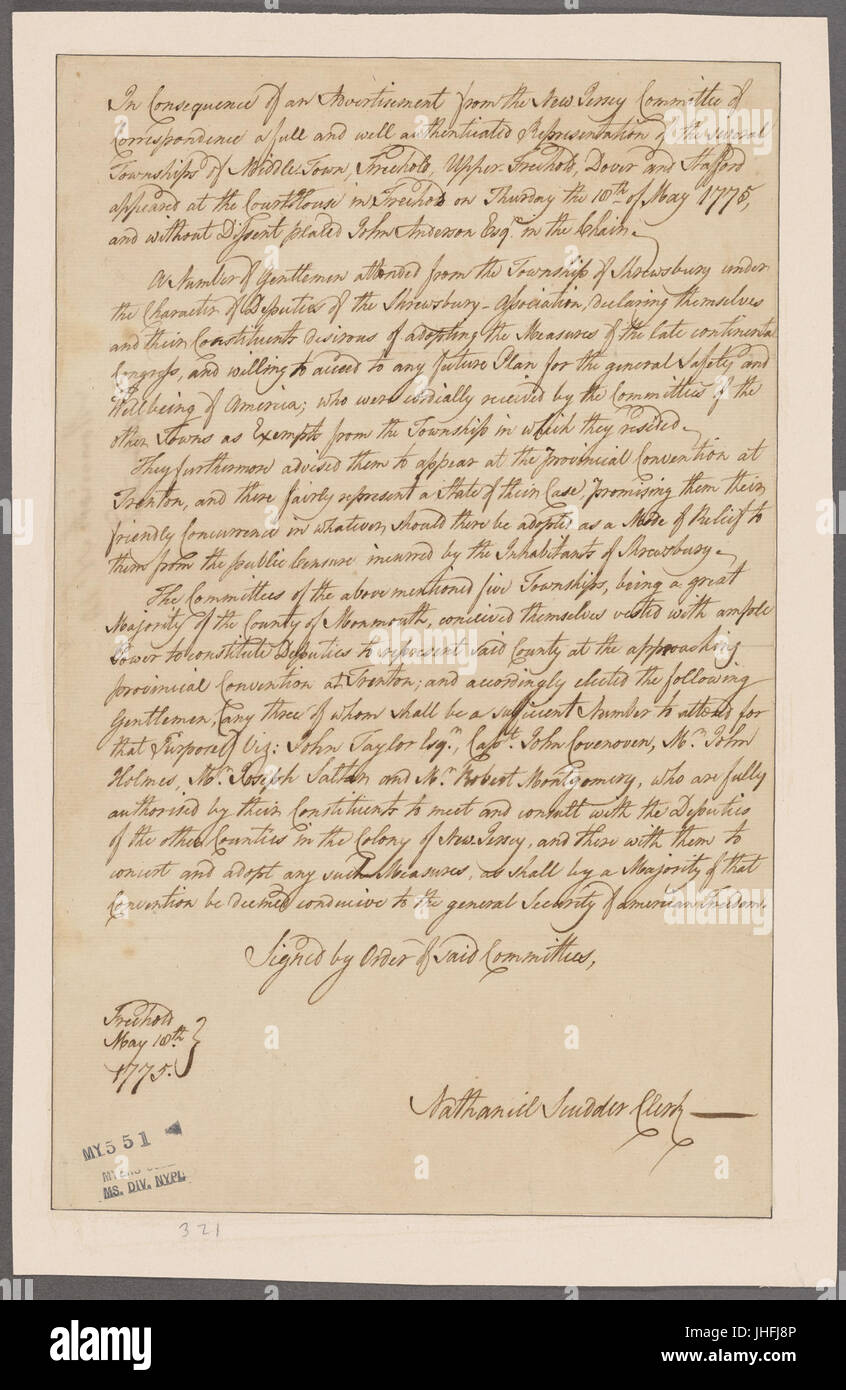 In Consequence of an Advertisement from the New Jersey Committee of
Correspondence a full and well authenticated Representation of the several
Townships of Middle Town, Freehold, Upper-Freehold, Dover and Stafford
appeared at the Court House in Freehold on Thursday the 18th of May 1775,
and without Dissent placed John Anderson Esqr in the Chair.
A Number of Gentlemen attended from the Township of Shrewsbury under
the Character of Deputies of the Shrewsbury-Association, declaring themselves
and their Constituents desirous of adopting the Measures of the late continental
Congress, and willing to acceed to any future Plan for the general Safety and
Well being of America; who were cordially received by the Committees of the
other Towns as Exempts from the Township in which they resided.
They furthermore advised them to appear at the provincial Convention at
Trenton, and there fairly represent a State of their Case, promising them their
friendly Concurrence in whatever should there be adopted as a Mode of Relief to
them from the public Censure incurred by the Inhabitants of Shrewsbury.
The Committees of the above mentioned five Townships, being a great
Majority of the County of Monmouth, conceived themselves vested with ample
Power to constitute Deputies to represent said County at the approaching
provincial Convention at Trenton; and accordingly elected the following
Gentlemen, (any three of whom shall be a sufficient Number to attend for
that Purpose) Viz: John Taylor Esqr, Capt. John Covenoven, Mr. John
Holmes, Mr. Joseph Saltar and Mr. Robert Montgomery, who are fully
authorised by their Constituents to meet and consult with the Deputies
of the other Counties in the Colony of New Jersey, and there with them to
concert and adopt any such Measures, as shall by a Majority of that
Convention be deemed conducive to the general Security of american Freedom.
Signed by Order of said Committees,
Freehold
May 18th
1775.
Nathaniel Scudder Clerk
MY551
MS. DIV. NYPL
321
alamy
Image ID: JHFJ8P
www.alamy.com